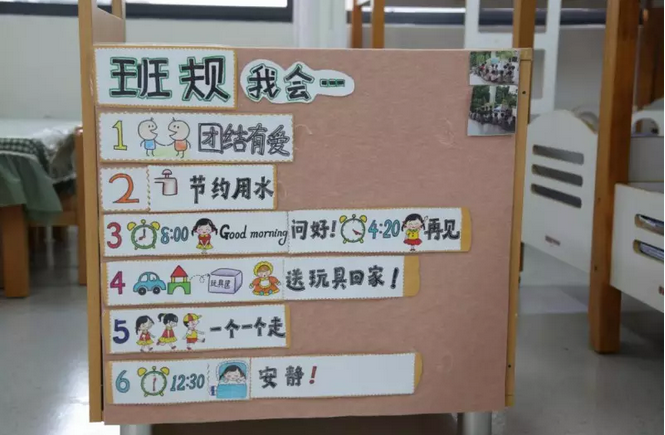 班规 我会…
1 团结有爱
2 节约用水
3 8:00 Good morning 问好! 4:20 再见
4 玩具筐 送玩具回家!
5 一个一个走
6 12:30 安静!